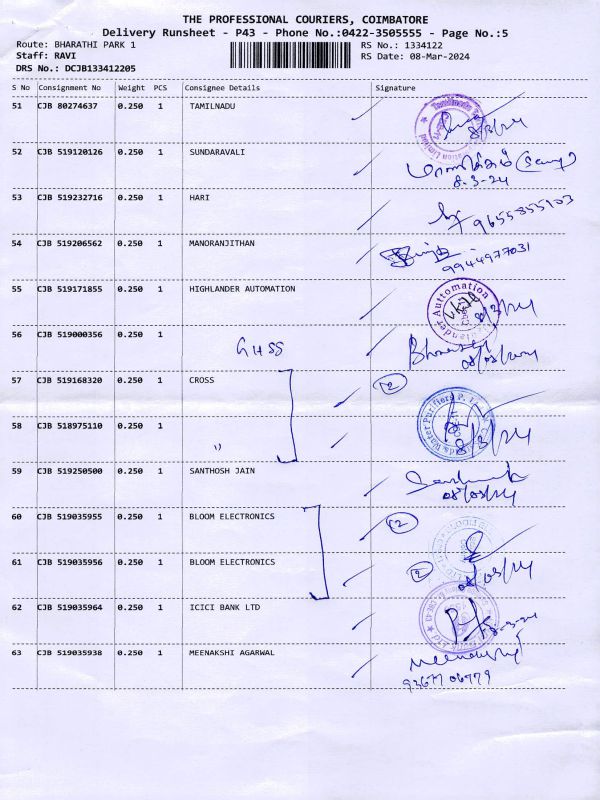 THE PROFESSIONAL COURIERS, COIMBATORE
Delivery Runsheet - P43 - Phone No.:0422-3505555 - Page No.:5
Route: BHARATHI PARK 1 RS No.: 1334122
Staff: RAVI RS Date: 08-Mar-2024
DRS No.: DCJB133412205
S No Consignment No Weight PCS Consignee Details Signature
51 CJB 80274637 0.250 1 TAMILNADU 8/3/24
52 CJB 519120126 0.250 1 SUNDARAVALI
8-3-24
53 CJB 519232716 0.250 1 HARI 9655855103
54 CJB 519206562 0.250 1 MANORANJITHAN
9944977031
55 CJB 519171855 0.250 1 HIGHLANDER AUTOMATION 8/3/24
56 CJB 519000356 0.250 1
GHSS
08/03/2024
57 CJB 519168320 0.250 1 CROSS 2
58 CJB 518975110 0.250 1 8/3/24
"
59 CJB 519250500 0.250 1 SANTHOSH JAIN
08/03/24
60 CJB 519035955 0.250 1 BLOOM ELECTRONICS 2
61 CJB 519035956 0.250 1 BLOOM ELECTRONICS 2 08/03/24
62 CJB 519035964 0.250 1 ICICI BANK LTD 8-3-24
63 CJB 519035938 0.250 1 MEENAKSHI AGARWAL
9367706779